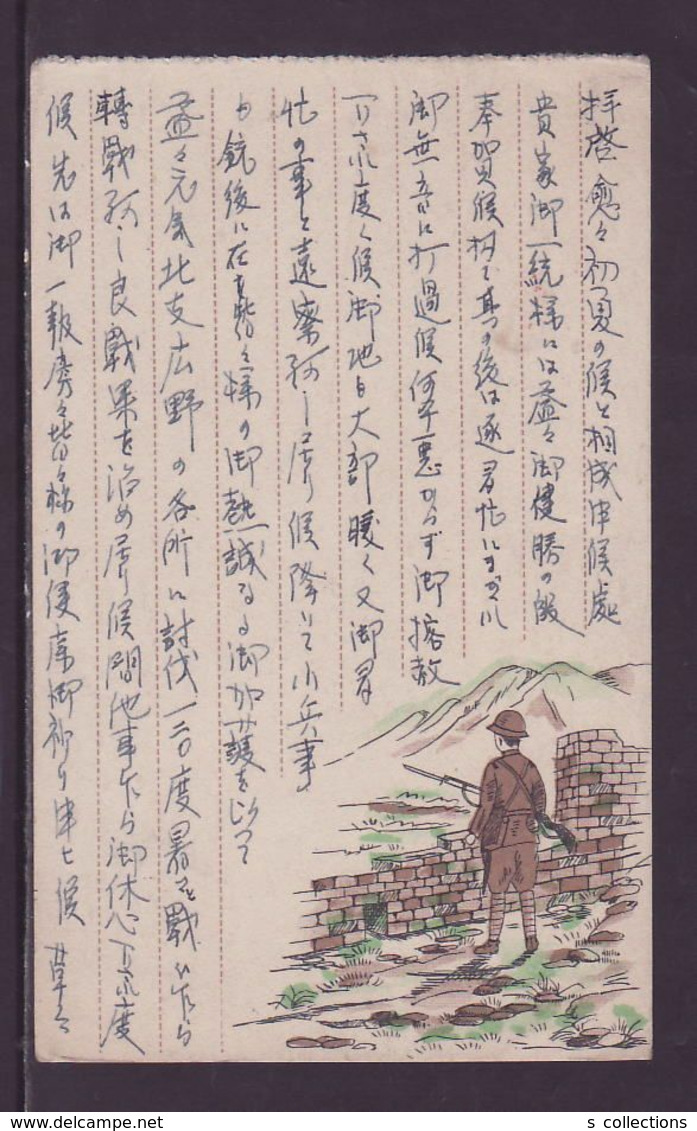 拝啓愈々初夏の候と相成申候處
貴家御一統様には益々御健勝の段
奉賀候扨て其の後は逐日忙にまぎれ
御無音に打過候何卒悪からず御容赦
下され度く候御地も大部暖く又御多
忙の事と遠察致し居り候降って小兵事
も銃後に在る皆々様の御熱誠なる御加護を以って
益々元気北支広野の各所に討伐一二〇度暑さと戦ひ乍ら
轉戦致し良戦果を治め居り候間他事乍ら御休心下され度
候先は御一報旁々皆々様の御健康御祈り申上候 草々
s collections